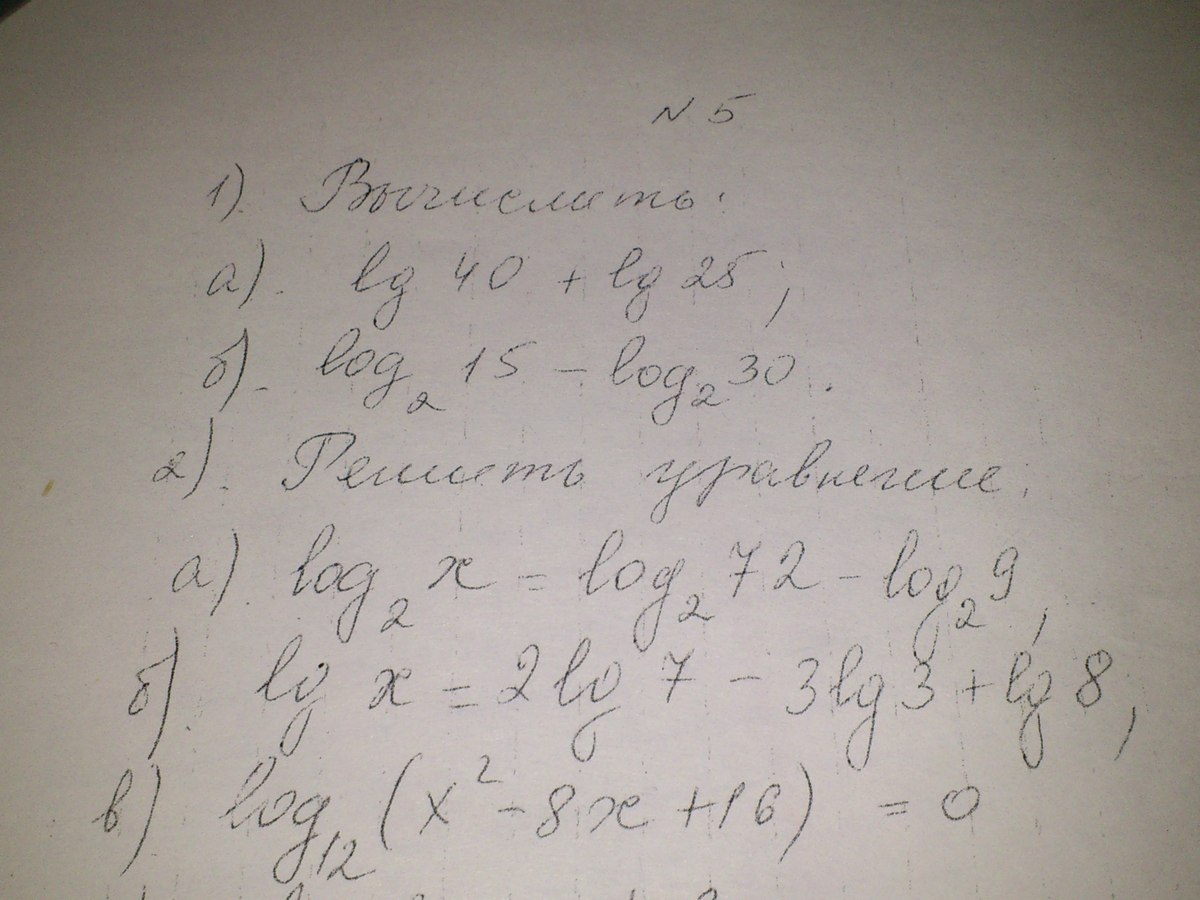 № 5
1). Вычислить:
а). lg 40 + lg 25;
б). log₂ 15 - log₂ 30.
2). Решить уравнение:
а) log₂ x = log₂ 72 - log₂ 9,
б) lg x = 2 lg 7 - 3 lg 3 + lg 8,
в) log₁₂ (x² - 8x + 16) = 0